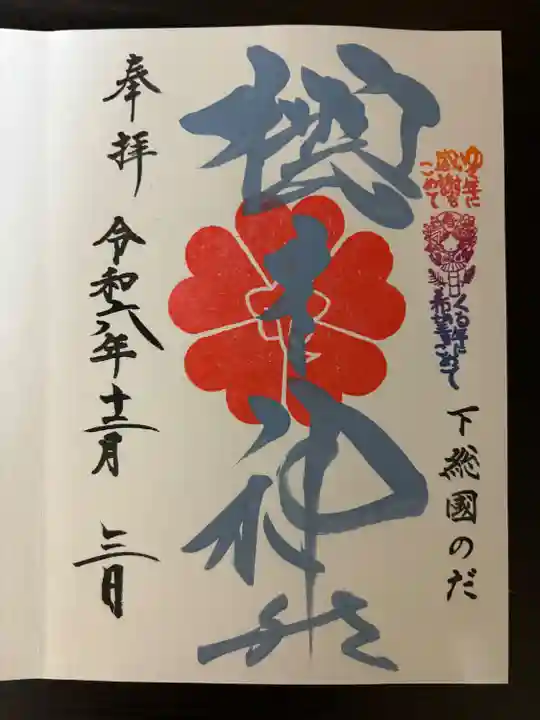 下総國のだ
ゆく年に
感謝を
こめて
くる年に
希望をこめて
櫻木神社
奉拝 令和六年十二月 三日